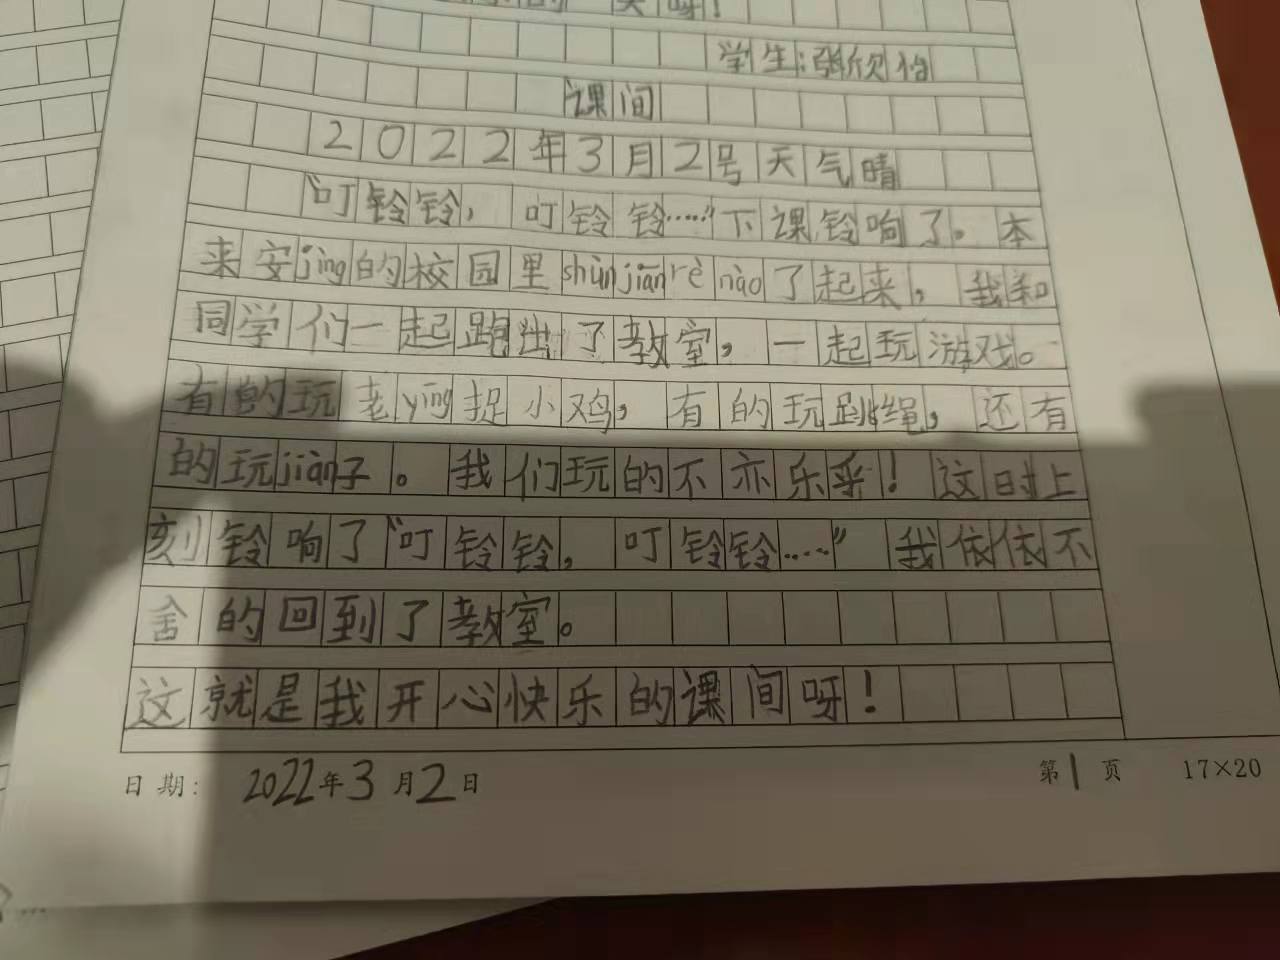 快呀！
学生：张欣怡
课间
2022年3月2号天气晴
“叮铃铃，叮铃铃……”下课铃响了。本
来安jìng的校园里shùnjiānrènào了起来，我和
同学们一起跑出了教室，一起玩游戏。
有的玩老yīng捉小鸡，有的玩跳绳，还有
的玩jiàn子。我们玩的不亦乐乎！这时上
刻铃响了“叮铃铃，叮铃铃……”我依依不
舍的回到了教室。
这就是我开心快乐的课间呀！
日期：2022年3月2日
第1页 17×20